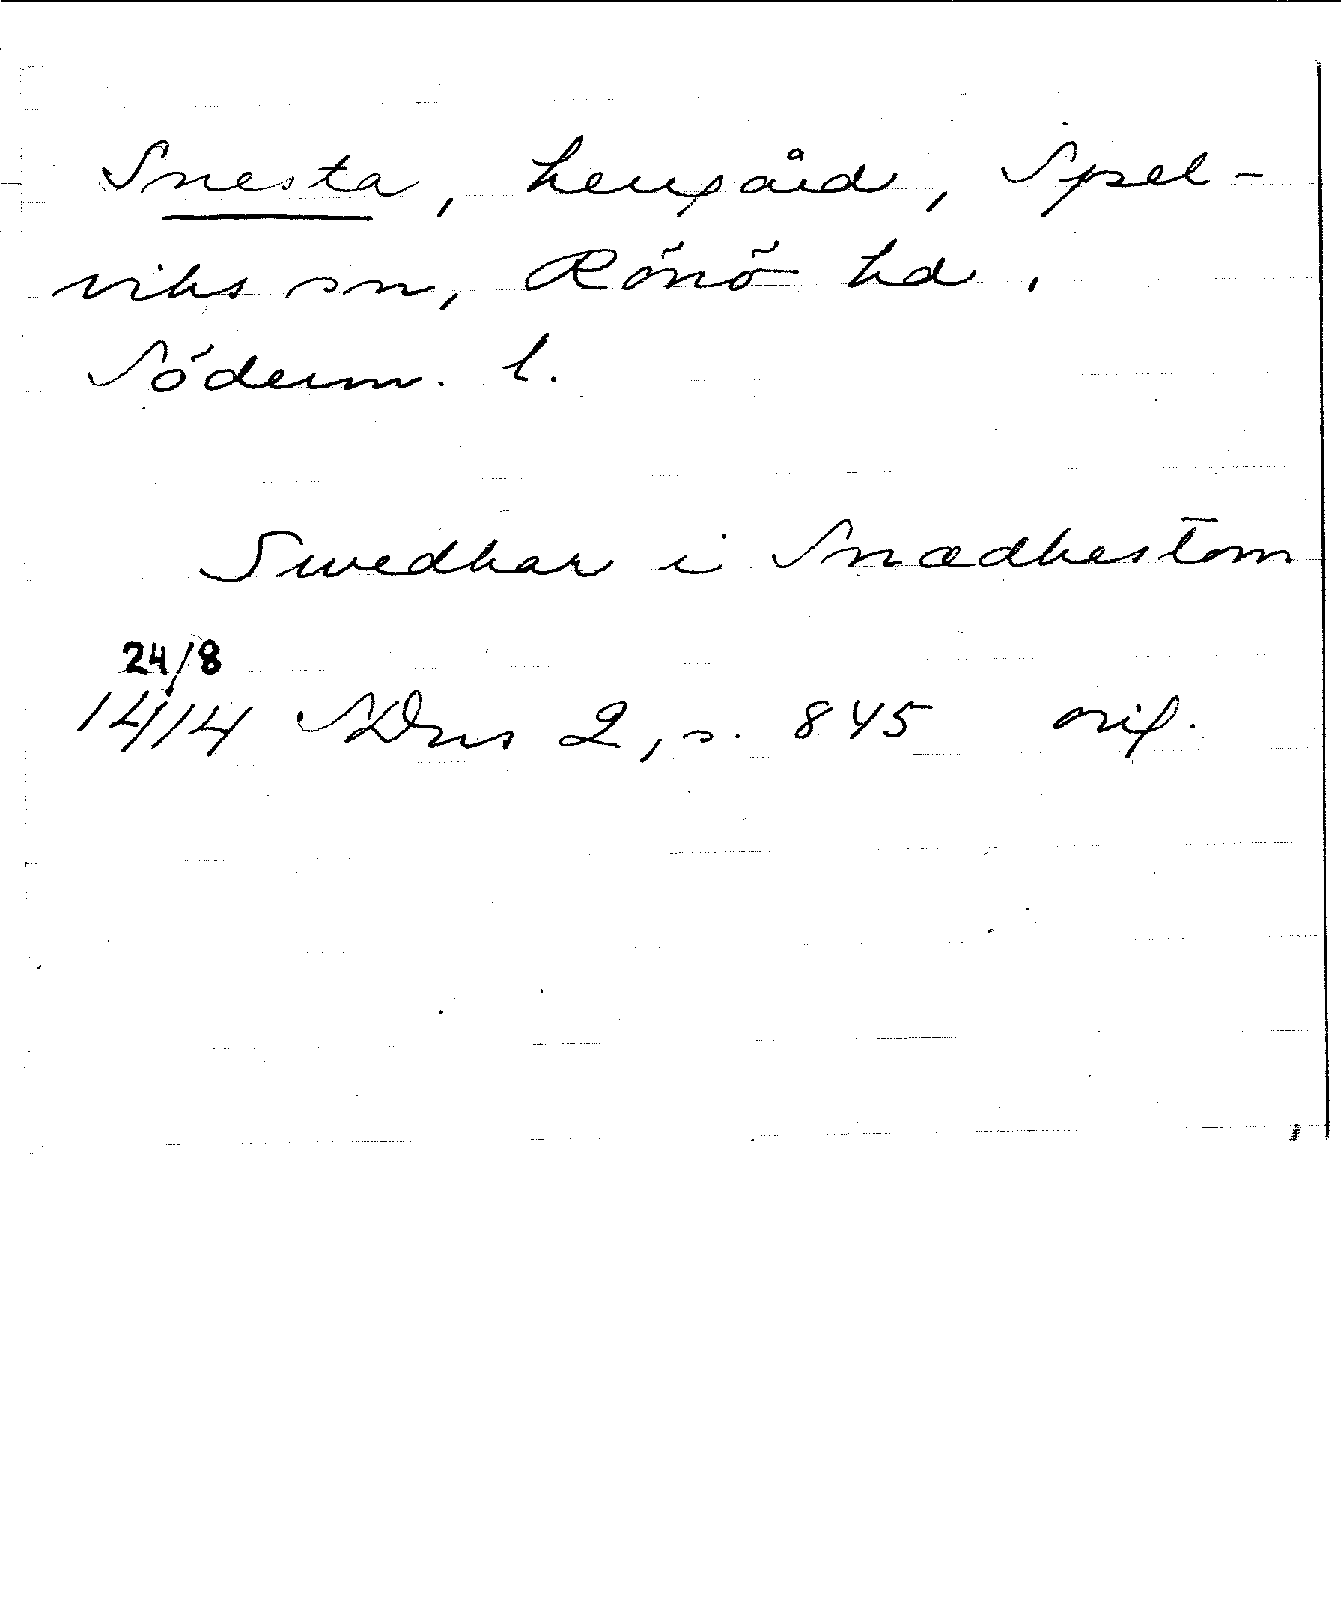 Snesta, herrgård, Spel-
viks sn, Rönö hd,
Söderm. l.
Swedhar i Snædhestom
24/8
1414 SDns 2, s. 845 orig.